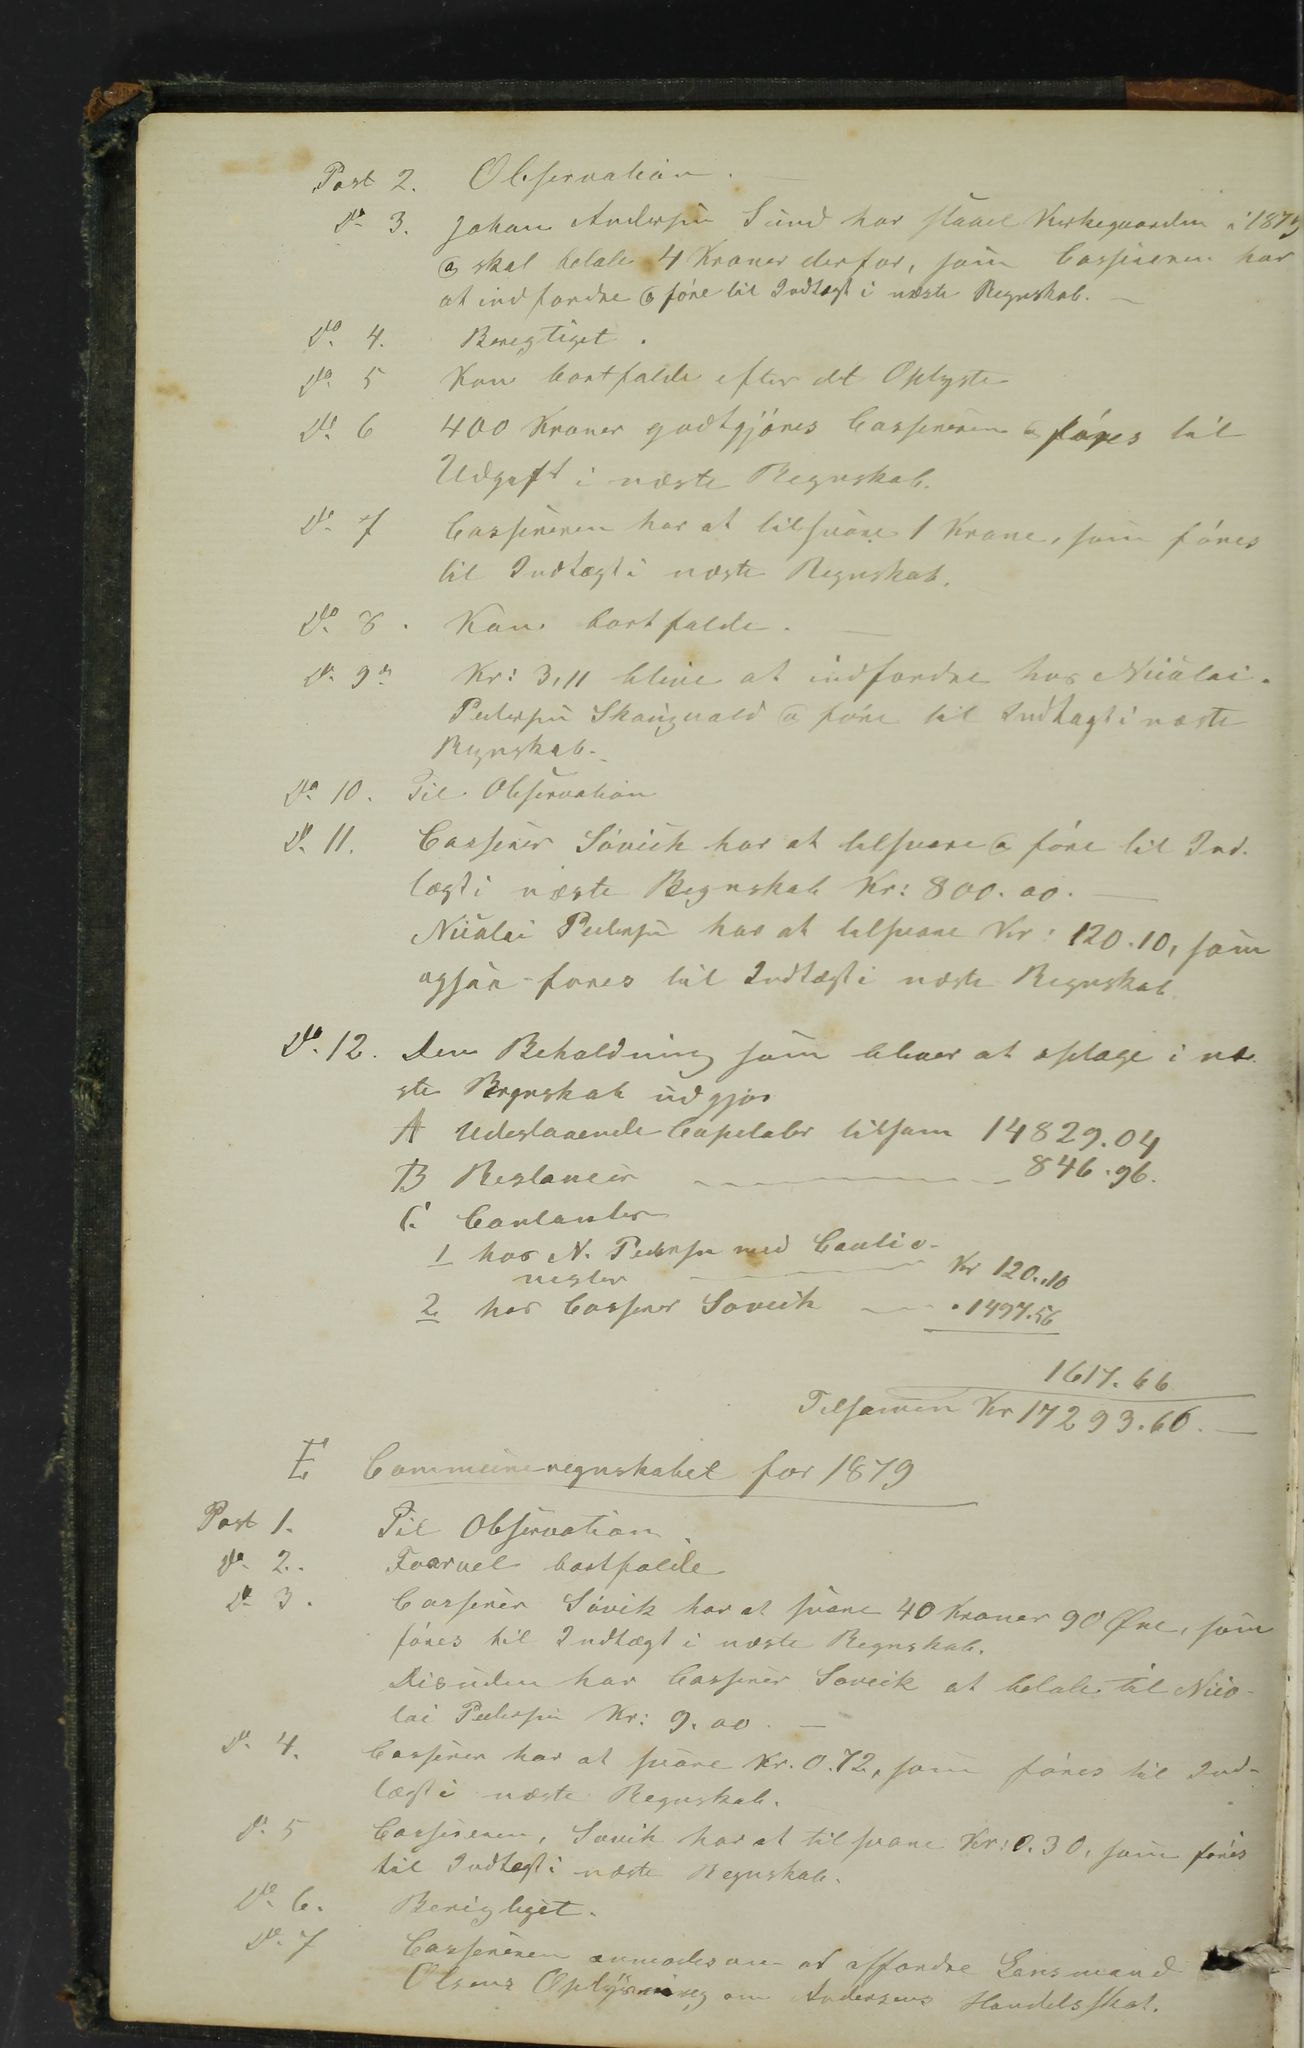 Post 2. Observation.
Do 3. Johan Andersen Sund har slaaet Kirkegaarden i 1879
og skal betale 4 Kroner derfor, som Cassereren har
at indfordre og före til Indtægt i næste Regnskab.
Do 4. Berigtiget.
Do 5 Kan bortfalde efter det Oplyste
Do 6 400 Kroner godtgjöres Cassereren og föres til
Udgift i næste Regnskab.
Do 7 Cassereren har at tilsvare 1 Krone, som föres
til Indtægt i næste Regnskab.
Do 8. Kan bortfalde.
Do 9de Kr: 3,11 blive at indfordre hos Nicolai
Pedersen Skaugvold og före til Indtægt i næste
Regnskab.
Do 10. Til Observation
Do 11. Casserer Sövik har at tilsvare og före til Ind-
tægt i næste Regnskab Kr: 800.00.
Nicolai Pedersen har at tilsvare Kr: 120.10, som
ogsaa föres til Indtægt i næste Regnskab.
Do 12. Den Beholdning som bliver at optage i næ-
ste Regnskab udgjör
A Udestaaende Capitaler tilsam 14829.04
B Restancer 846.96.
C. Contanter
1 hos N. Pedersen med Cautio-
nister Kr 120.10
2 hos Casserer Sövik 1497.56
1617.66
Tilsammen Kr 17293.66.
E Communeregnskabet for 1879
Post 1. Til Observation.
Do 2. Forarvet bortfalde
Do 3. Casserer Sövik har at svare 40 Kroner 90 Øre, som
föres til Indtægt i næste Regnskab.
Desuden har Casserer Sövik at betale til Nico-
lai Pedersen Kr: 9.00.
Do 4. Casserer har at svare Kr. 0.72, som föres til Ind-
tægt i næste Regnskab.
Do 5 Cassereren, Sövik har at tilsvare Kr: 0.30, som föres
til Indtægt i næste Regnskab.
Do 6. Berigtiget.
Do 7 Cassereren anmodes om at affordre Lensmand
Olsens Oplysning om Andersens Handelsskat.